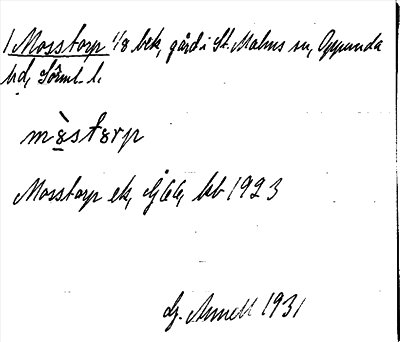 1 Mosstorp 1/8 bek, gård i St. Malms sn, Oppunda
hd, Sörml. l.
mòstorp
Mosstorp ek, Gj 66, kb 1923
1931